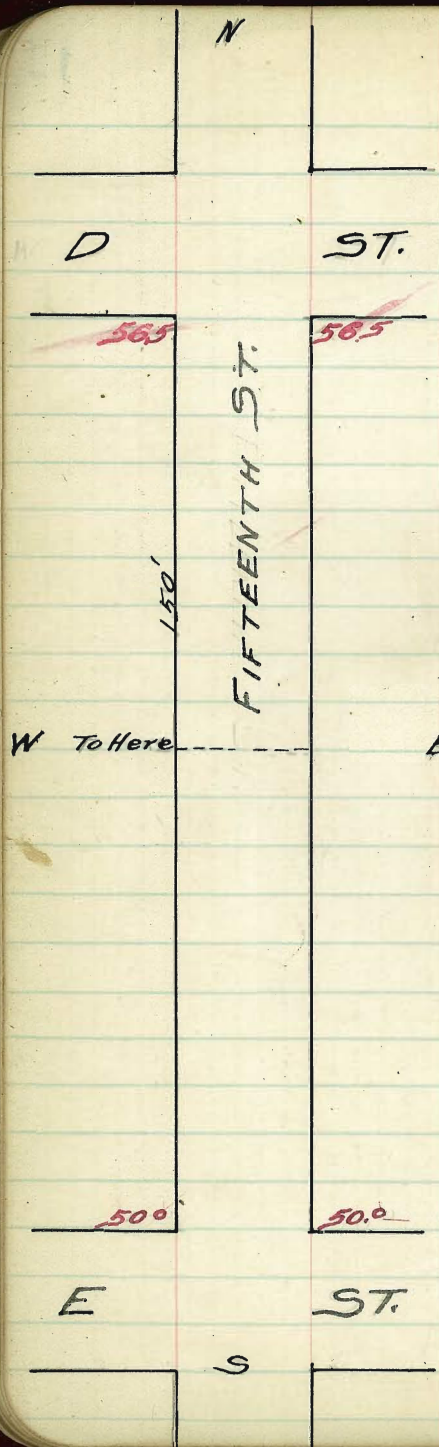 N
D ST.
56.5 56.5
FIFTEENTH ST.
150'
W To Here E
50.0 50.0
E ST.
S